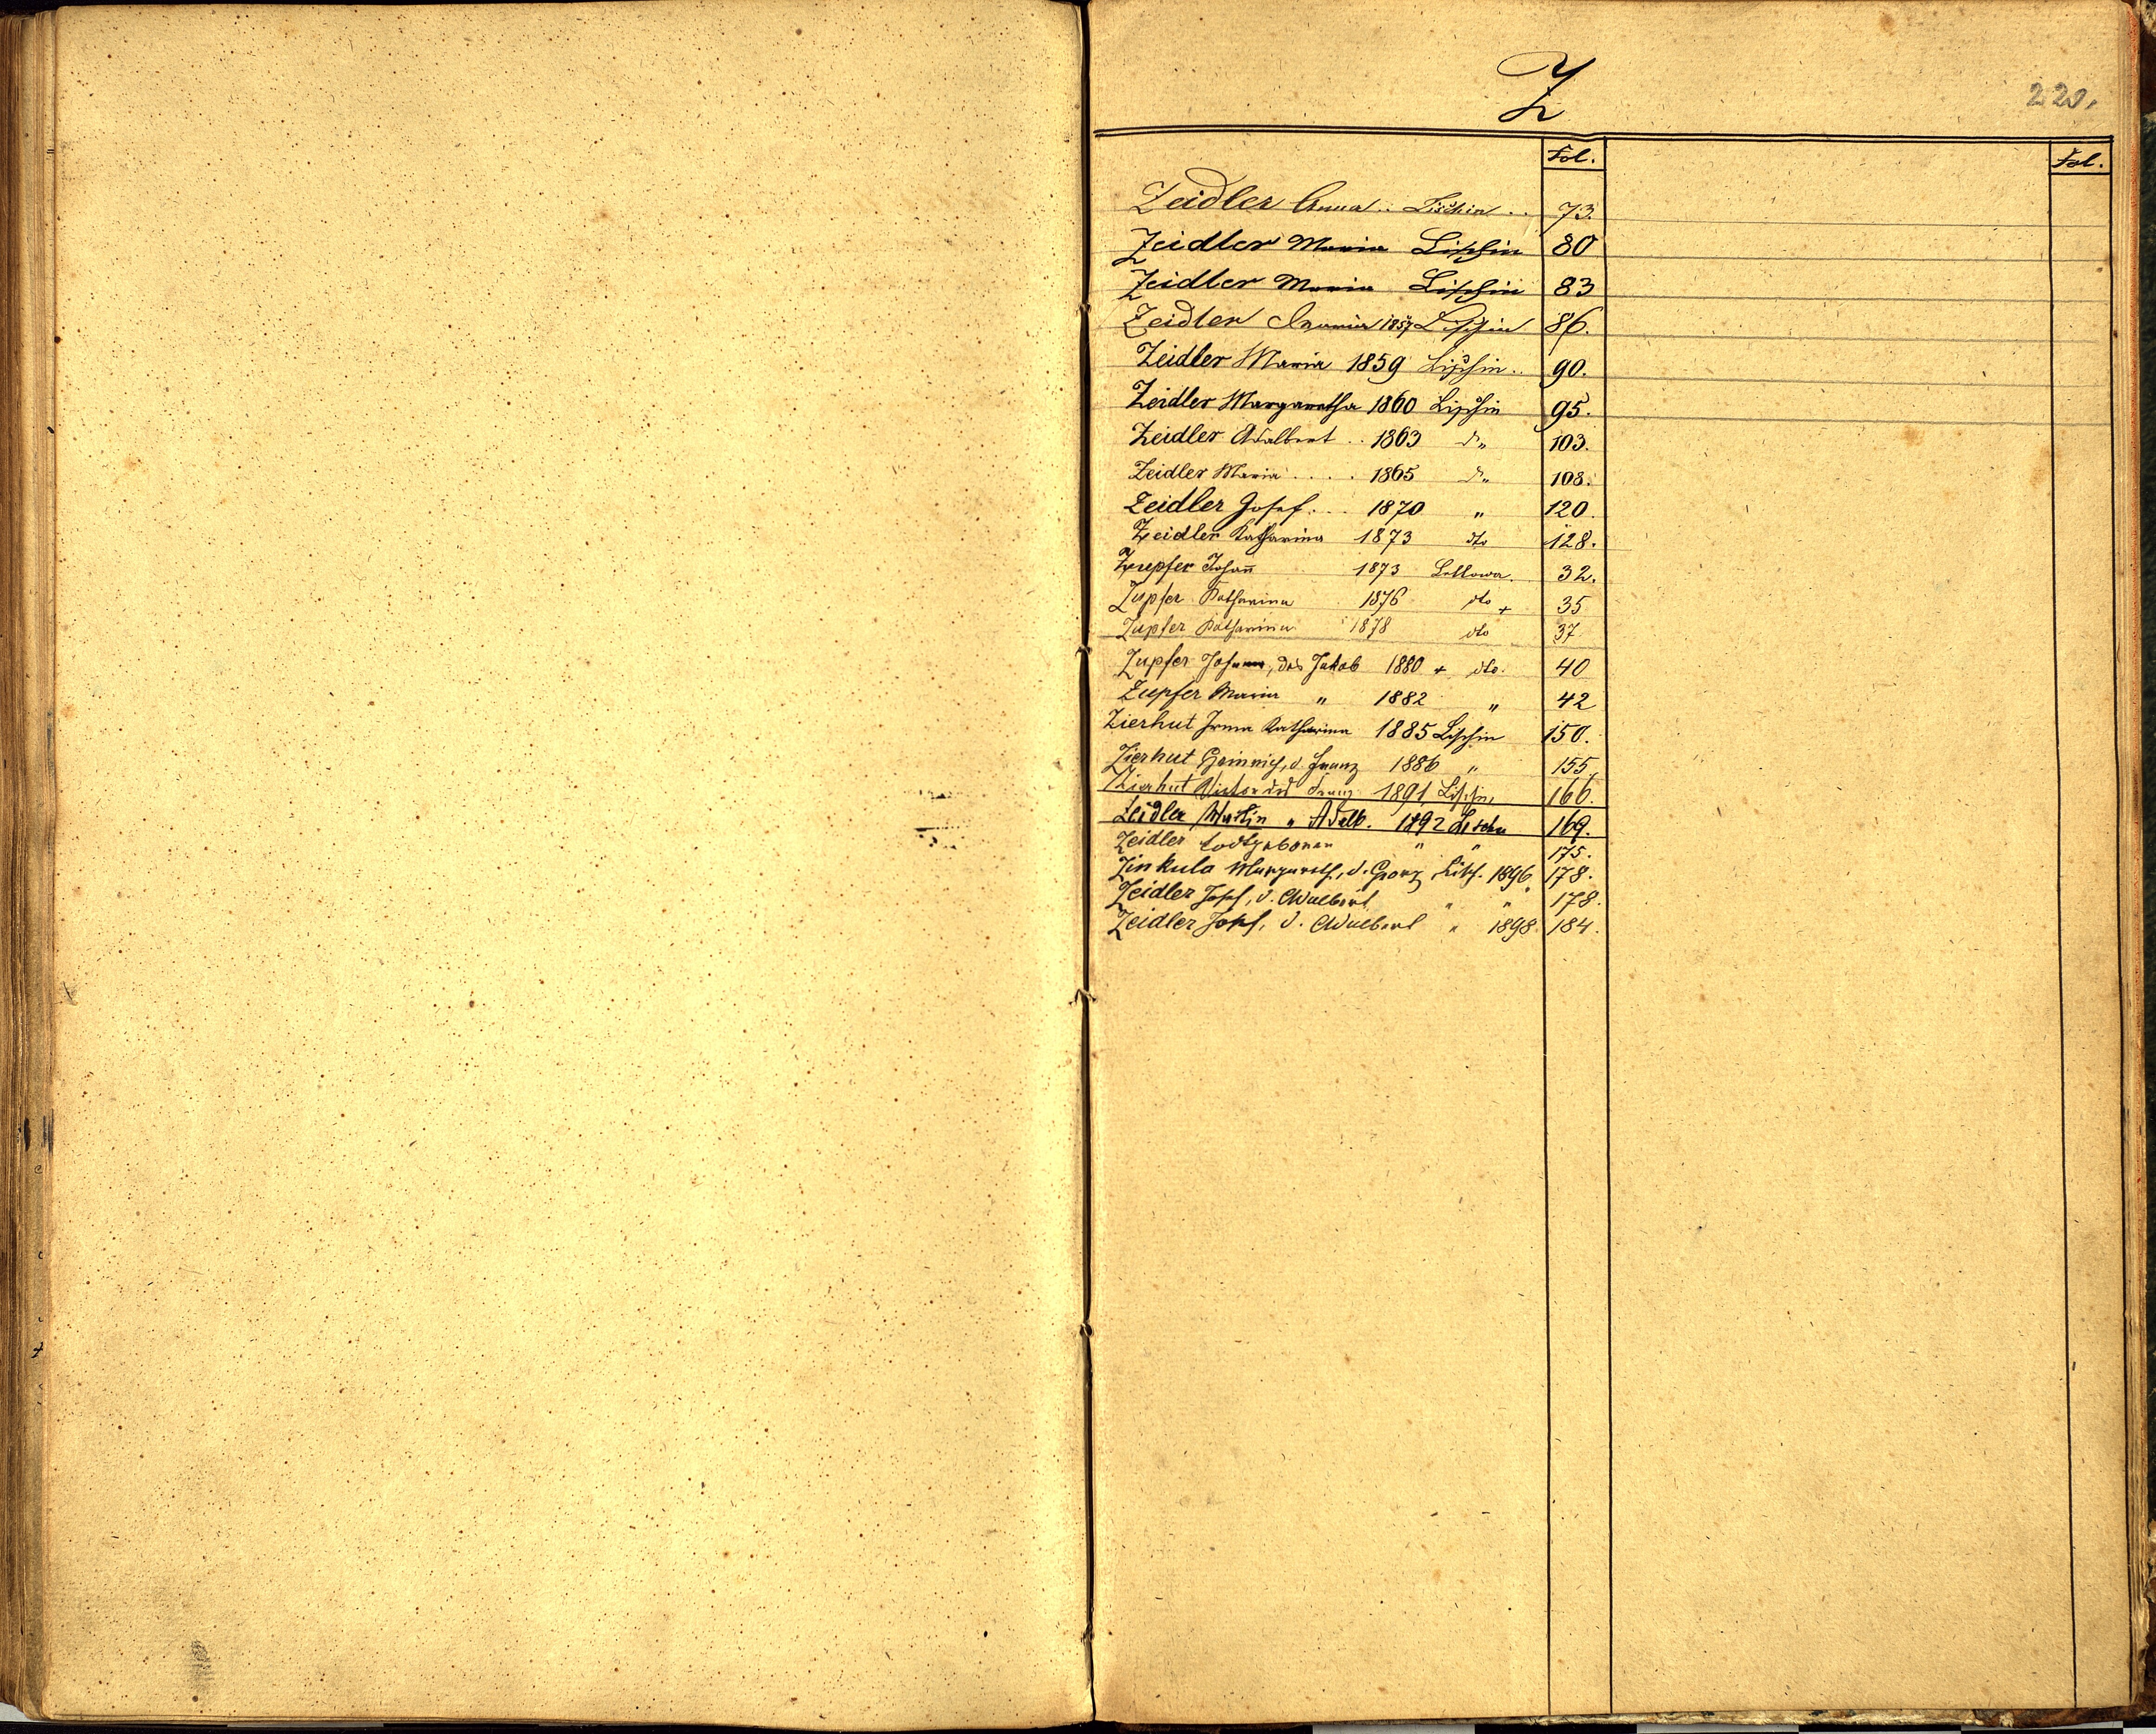 Z
220.
Fol. Fol.
Zeidler Anna .. Lischin .. 73.
Zeidler Maria Lischin 80
Zeidler Maria Lischin 83
Zeidler Maria 1857 Lischin 86.
Zeidler Maria 1859 Lischin .. 90.
Zeidler Margaretha 1860 Lischin 95.
Zeidler Adalbert .. 1863 d„ 103.
Zeidler Maria .... 1865 d„ 108.
Zeidler Josef ... 1870 „ 120.
Zeidler Katharina 1873 dto 128.
Zupfer Johan̄ 1873 Sellowa. 32.
Zupfer Katharina 1876 dto + 35
Zupfer Katharina 1878 dto 37.
Zupfer Johann, des Jakob 1880 + dto. 40
Zupfer Maria „ 1882 „ 42
Zierhut Irma Katharina 1885 Lischin 150.
Zierhut Heinrich, d. Franz 1886 „ 155.
Zierhut Victor des Franz 1891 Lischin, 166.
Zeidler Martin „ Adalb. 1892 Lischn 169.
Zeidler todtgeboren „ „ 175.
Zinkula Margareth, d. Georg Lisch. 1896 178.
Zeidler Josef, d. Adalbert „ „ 178.
Zeidler Josef, d. Adalbert „ 1898 184.